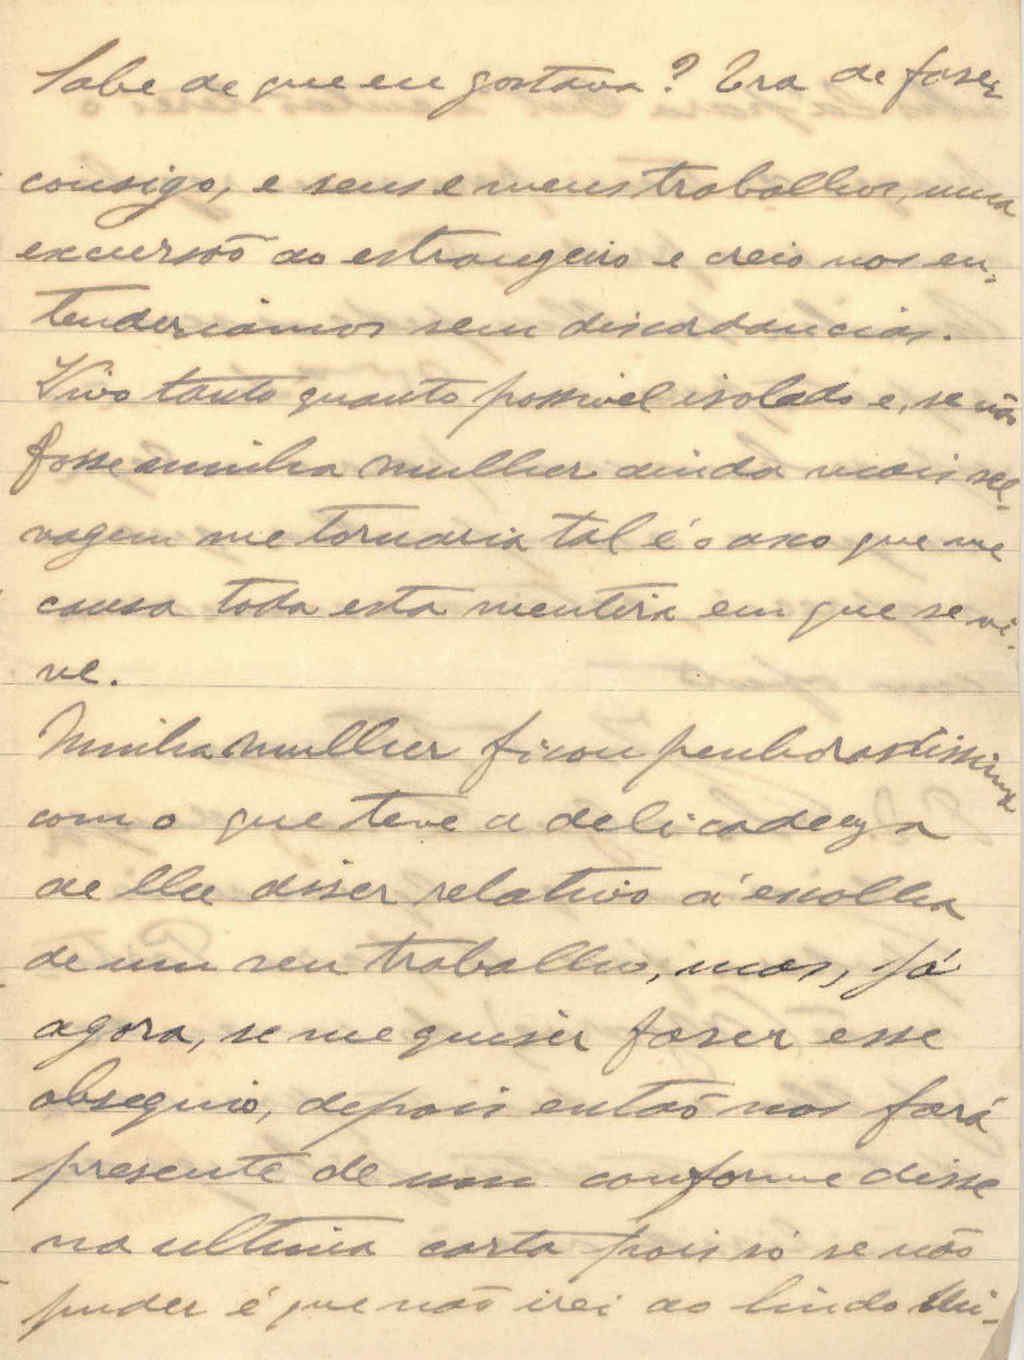 Sabe de que eu gostava? Era de faser
consigo, e seus e meus trabalhos, uma
excursão ao estrangeiro e creio nos en-
tenderiamos sem discordancias.
Vivo tanto quanto possivel isolado e, se não
fosse minha mulher ainda mais sel-
vagem me tornaria tal é o asco que me
causa toda esta mentira em que se vi-
ve.
Minha mulher ficou penhoradissima
com o que teve a delicadeza
de lhe diser relativo á escolha
de um seu trabalho, mas, já
agora, se me quiser faser esse
obsequio, depois então nos fará
presente de um conforme disse
na ultima carta pois só se não
puder é que não irei ao lindo Mi-